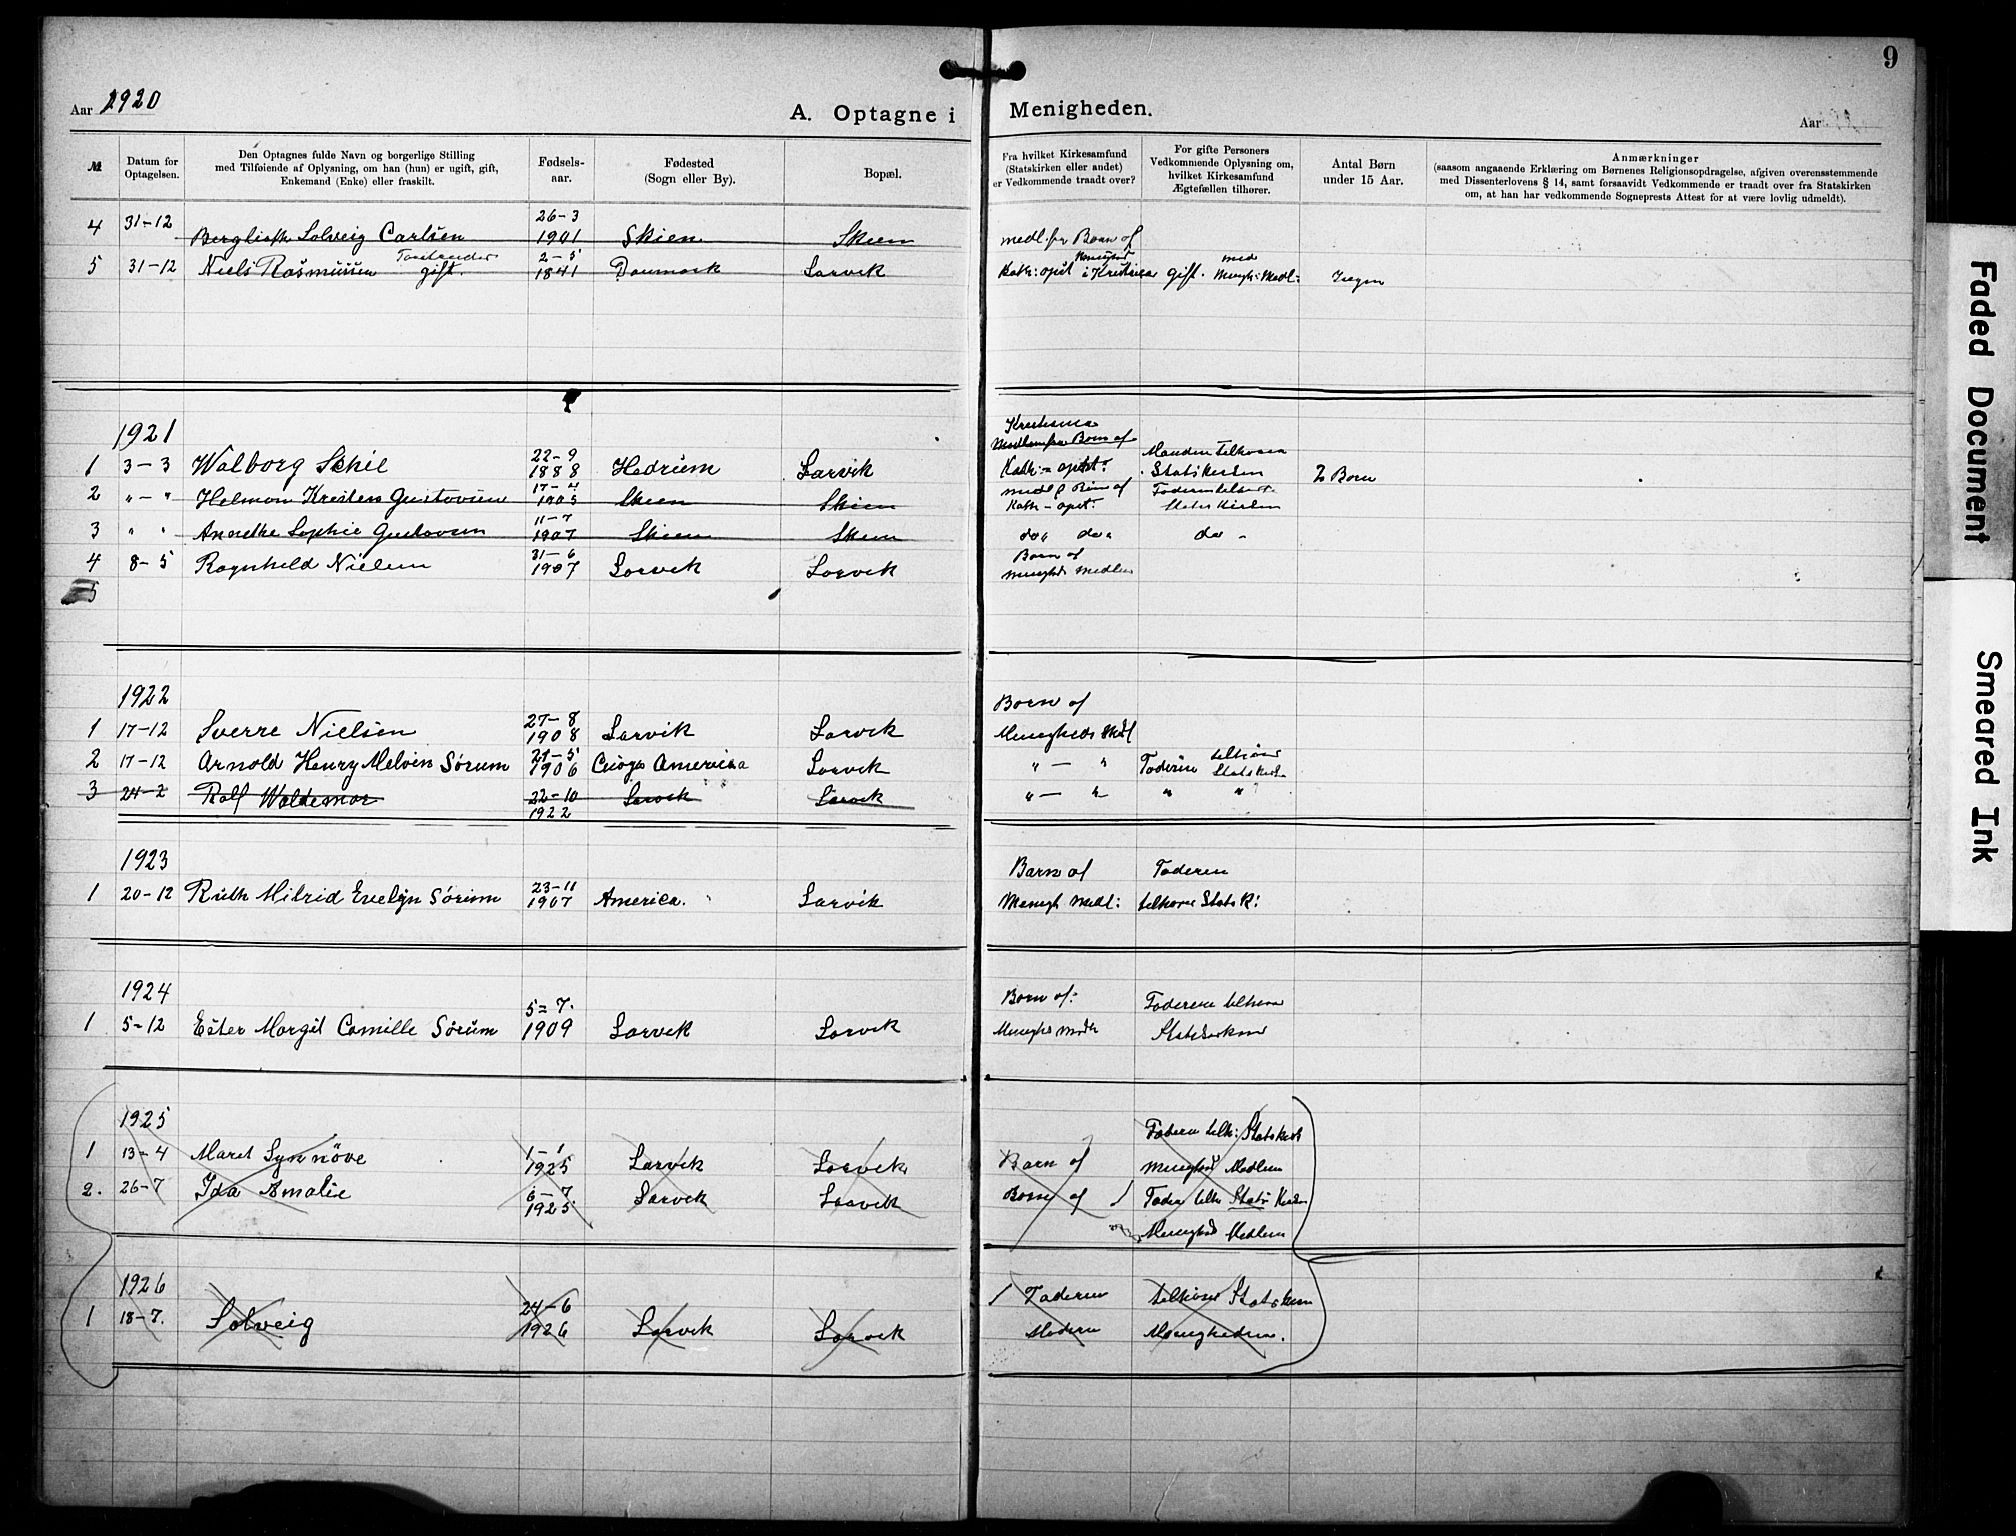 9
Aar 1920
A. Optagne i Menigheden.
Aar
№
Datum for Optagelsen.
Den Optagnes fulde Navn og borgerlige Stilling
med Tilføiende af Oplysning, om han (hun) er ugift, gift,
Enkemand (Enke) eller fraskilt.
Fødsels-
aar.
Fødested
(Sogn eller By).
Bopæl.
Fra hvilket Kirkesamfund
(Statskirken eller andet)
er Vedkommende traadt over?
For gifte Personers
Vedkommende Oplysning om,
hvilket Kirkesamfund
Ægtefællen tilhører.
Antal Børn
under 15 Aar.
Anmærkninger
(saasom angaaende Erklæring om Børnenes Religionsopdragelse, afgiven overensstemmende
med Dissenterlovens § 14, samt forsaavidt Vedkommende er traadt over fra Statskirken
om, at han har vedkommende Sogneprests Attest for at være lovlig udmeldt).
4 31-12 Berglioth Solveig Carlsen 26-3 1901 Skien Skien Barn af
5 31-12 Niels Rasmussen gift. 2-5 1841 Danmark Larvik Kath: apost i Kristiania gift. med Mengh: Medl: Ingen
1921
1 3-3 Walborg Schie 22-9 1888 Hedrum Larvik Kristiania Barn af Kath- apost: Manden tilhører Statskirken 2 Born
2 " - " Helmon Kristen Gustavsen 1905 Skien Skien Kath - apst: Stats Kirken
3 " " Annethe Sophie Gustavsen 11-7 1907 Skien Skien do do do
4 8-5 Ragnhild Nielsen 31-6 1907 Larvik Larvik Barn af menighds medlem
5
1922
1 17-12 Sverre Nielsen 27-8 1908 Larvik Larvik Barn af Menigheds Medl
2 17-12 Arnold Henry Melvin Sørum 1906 America Larvik " - " Faderen tilhører Statskirk
3 24-2 Ralf Waldemar 22-10 1922 Larvik Larvik " - " " "
1923
1 20-12 Ruth Milrid Evelyn Sørum 23-11 1907 America. Larvik Barn af Menigh Medl: Faderen tilhører Stats K:
1924
1 5-12 Ester Margit Camille Sørum 5=7. 1909 Larvik Larvik Barn af: Faderen tilhører
1925
1 13-4 Maret Synnöve 1-1 1925 Larvik Larvik Barn af Faderen tilh: Statskirk menighds Medlem
2. 26-7 Ida Amalie 6-7. 1925 Larvik Larvik Barn af Fader tilh Stats Kirken Menighds Medlem
1926
1 18-7. Solveig 24-6 1926 Larvik Larvik Faderen tilhører Statskirken
Modern Menigheden.
Faded Document
Smeared Ink